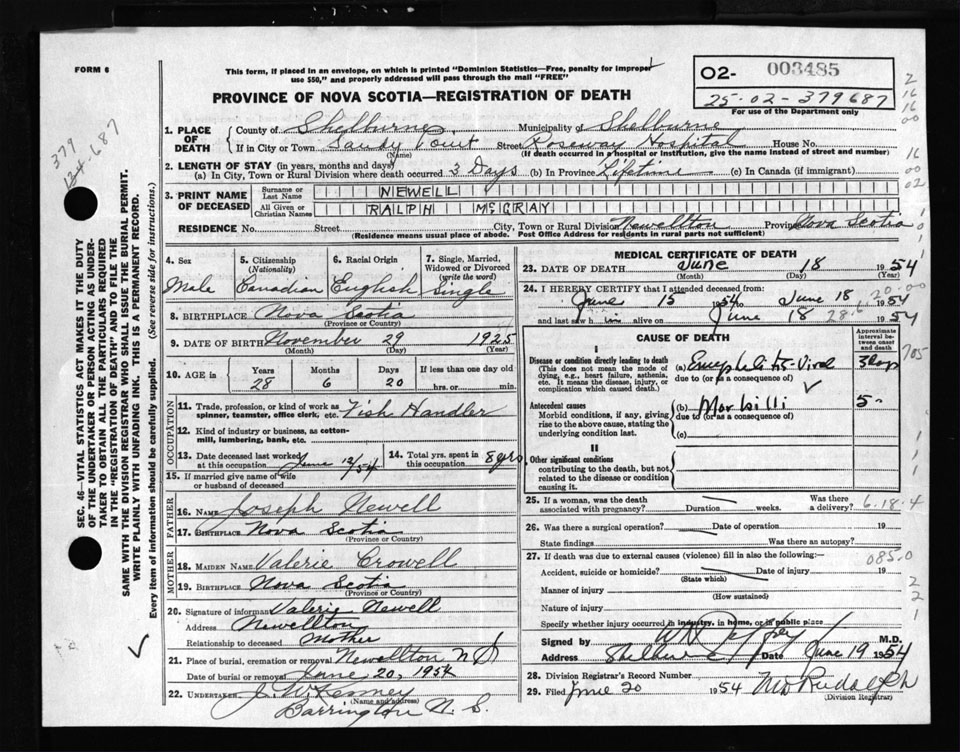 FORM 6
This form, if placed in an envelope, on which is printed "Dominion Statistics—Free, penalty for improper
use $50," and properly addressed will pass through the mail "FREE"
02- 003485
25-02-379687
For use of the Department only
PROVINCE OF NOVA SCOTIA—REGISTRATION OF DEATH
379
687
1. PLACE OF DEATH
County of Shelburne Municipality of Shelburne
If in City or Town Sandy Point Street Roseway Hospital House No.
(Name) (If death occurred in a hospital or institution, give the name instead of street and number)
2. LENGTH OF STAY (in years, months and days)
(a) In City, Town or Rural Division where death occurred 3 Days (b) In Province Lifetime (c) In Canada (if immigrant)
3. PRINT NAME OF DECEASED
Surname or Last Name NEWELL
All Given or Christian Names RALPH McGRAY
RESIDENCE No. Street City, Town or Rural Division Newellton Province Nova Scotia
(Residence means usual place of abode. Post Office Address for residents in rural parts not sufficient)
4. Sex Male
5. Citizenship (Nationality) Canadian
6. Racial Origin English
7. Single, Married, Widowed or Divorced (write the word) Single
8. BIRTHPLACE Nova Scotia
(Province or Country)
9. DATE OF BIRTH November 29 1925
(Month) (Day) (Year)
10. AGE in Years Months Days If less than one day old
28 6 20 hrs. or min.
OCCUPATION
11. Trade, profession, or kind of work as spinner, teamster, office clerk, etc. Fish Handler
12. Kind of industry or business, as cotton-mill, lumbering, bank, etc.
13. Date deceased last worked at this occupation June 12/54
14. Total yrs. spent in this occupation 8 yrs
15. If married give name of wife or husband of deceased
FATHER
16. NAME Joseph Newell
17. BIRTHPLACE Nova Scotia
(Province or Country)
MOTHER
18. MAIDEN NAME Valerie Crowell
19. BIRTHPLACE Nova Scotia
(Province or Country)
20. Signature of informant Valerie Newell
Address Newellton
Relationship to deceased Mother
21. Place of burial, cremation or removal Newellton N S
Date of burial or removal June 20, 1954
22. UNDERTAKER
(Name and address)
Barrington N. S.
MEDICAL CERTIFICATE OF DEATH
23. DATE OF DEATH June 18 1954
(Month) (Day) (Year)
24. I HEREBY CERTIFY that I attended deceased from:
June 15 1954 to June 18 1954
20-00
and last saw him alive on June 18 1954
28.6
CAUSE OF DEATH
Approximate interval between onset and death
705
I
Disease or condition directly leading to death (This does not mean the mode of dying, e.g., heart failure, asthenia, etc. It means the disease, injury, or complication which caused death.)
(a) Encephalitis-Viral 3 days
due to (or as a consequence of)
Antecedent causes
Morbid conditions, if any, giving rise to the above cause, stating the underlying condition last.
(b) Morbilli 5-
due to (or as a consequence of)
(c)
II
Other significant conditions contributing to the death, but not related to the disease or condition causing it.
25. If a woman, was the death associated with pregnancy? Duration weeks. Was there a delivery? 6.18.4
26. Was there a surgical operation? Date of operation 19
State findings Was there an autopsy?
27. If death was due to external causes (violence) fill in also the following:—
085.0
Accident, suicide or homicide? Date of injury 19
(State which)
Manner of injury
(How sustained)
Nature of injury
Specify whether injury occurred in industry, in home, or in public place
Signed by M.D.
Address Shelburne Date June 19 1954
28. Division Registrar's Record Number
29. Filed June 20 1954 Rudolph
(Division Registrar)
SEC. 46—VITAL STATISTICS ACT MAKES IT THE DUTY
OF THE UNDERTAKER OR PERSON ACTING AS UNDER-
TAKER TO OBTAIN ALL THE PARTICULARS REQUIRED
IN THE "REGISTRATION OF DEATH" AND TO FILE THE
SAME WITH THE DIVISION REGISTRAR WHO SHALL ISSUE THE BURIAL PERMIT.
WRITE PLAINLY WITH UNFADING INK. THIS IS A PERMANENT RECORD.
Every item of information should be carefully supplied. (See reverse side for instructions.)